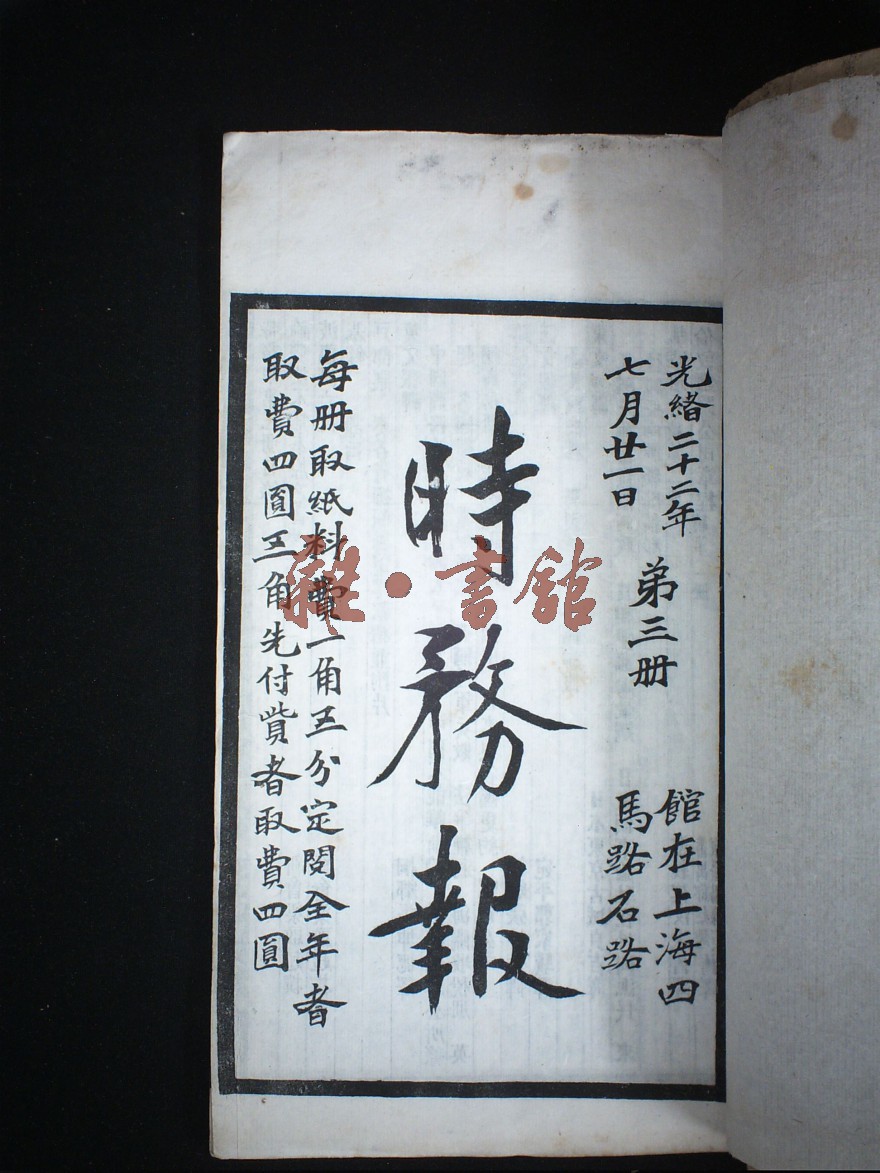 光緒二十二年
七月廿一日
弟三册
館在上海四
馬路石路
時務報
每册取紙料費一角五分定閱全年者
取費四圓五角先付貲者取費四圓
雜·書館